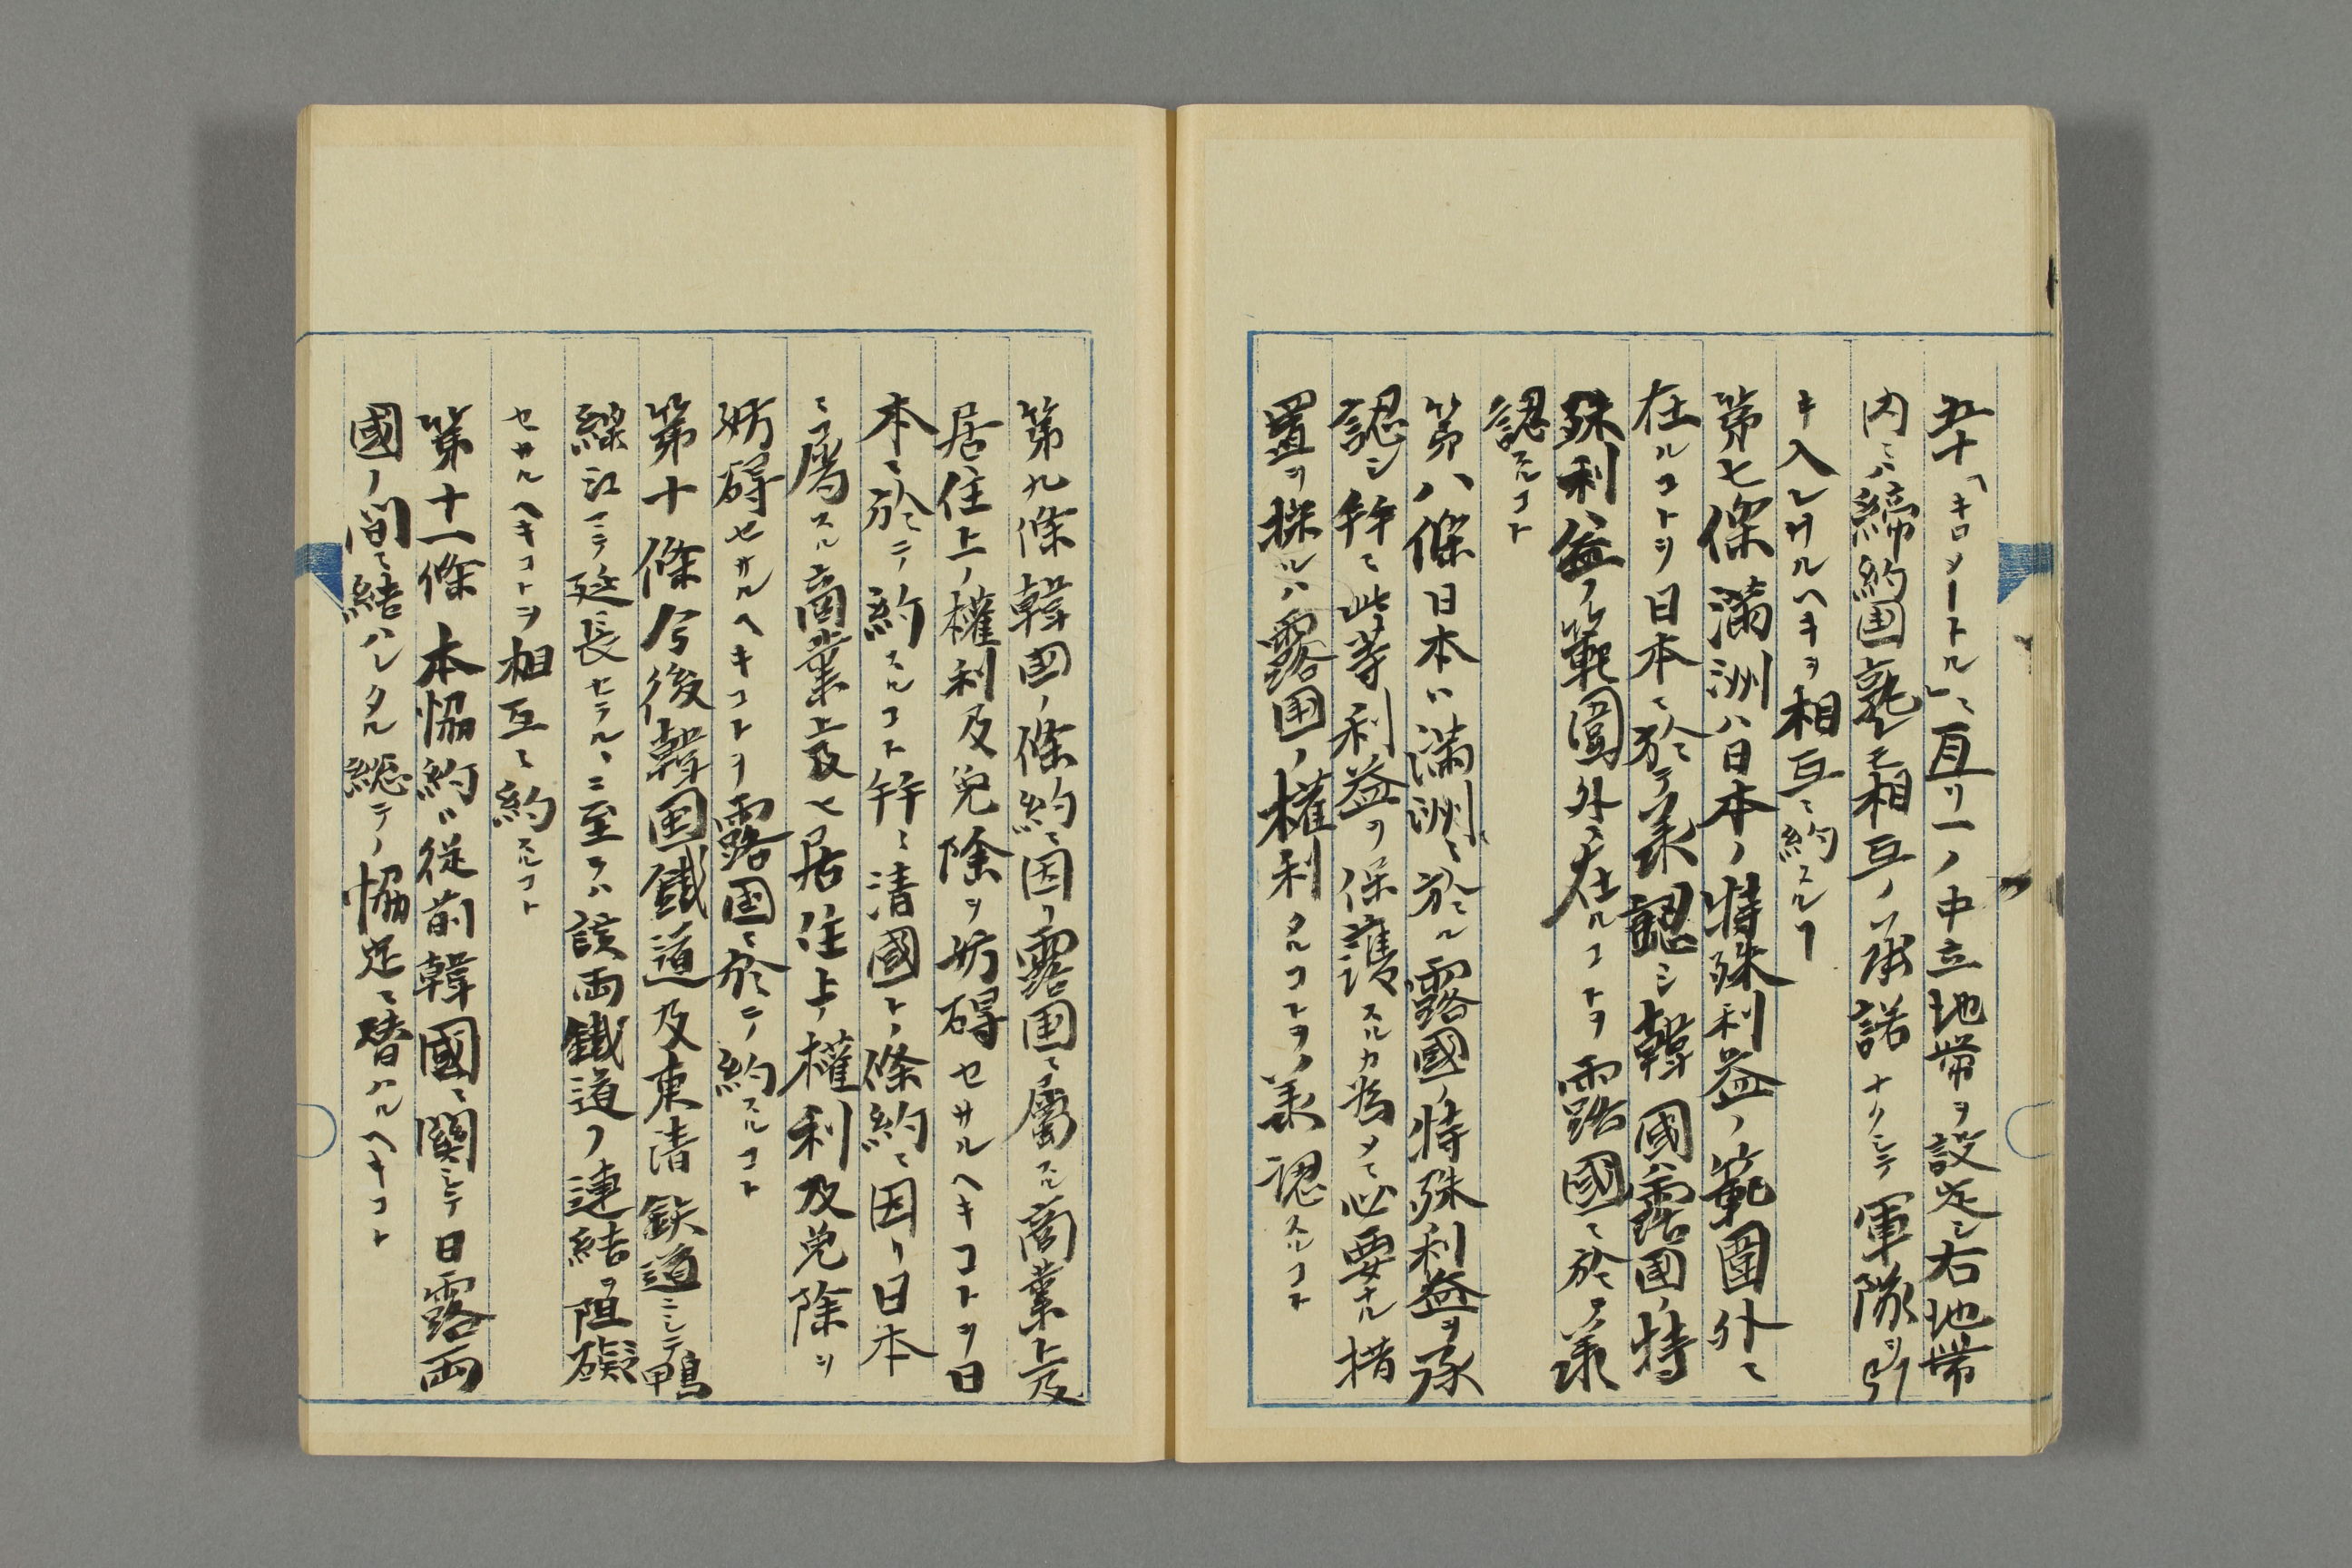 五十「キロメートル」ニ亘リ一ノ中立地帯ヲ設定シ右地帯
内ニハ締約国孰レモ相互ノ承諾ナクシテ軍隊ヲ引
キ入レサルヘキヲ相互ニ約スルヿ
第七條満洲ハ日本ノ特殊利益ノ範圍外ニ
在ルコトヲ日本ニ於テ承認シ韓國ハ露國ノ特
殊利益ノ範圍外ニ在ルコトヲ露國ニ於テ承
認スルコト
第八條日本ハ満洲ニ於ル露國ノ特殊利益ヲ承
認シ幷ニ此等利益ヲ保護スルカ為メニ必要ナル措
置ヲ採ルハ露国ノ權利タルコトヲ承認スルコト
第九條韓国ノ條約ニ因リ露国ニ屬スル商業上及
居住上ノ權利及免除ヲ妨碍セサルヘキコトヲ日
本ニ於テ約スルコト幷ニ清國トノ條約ニ因リ日本
ニ屬スル商業上及ヒ居住上ノ權利及免除ヲ
妨碍セサルヘキコトヲ露国ニ於テ約スルコト
第十條今後韓国鐵道及東清鉄道ニシテ鴨
緑江マテ延長セラルヽニ至ラハ該両鐵道ノ連結ヲ阻礙
セサルヘキコトヲ相互ニ約スルコト
第十一條本協約ハ従前韓國ニ關シテ日露両
國ノ間ニ結ハレタル総テノ協定ニ替ハルヘキコト